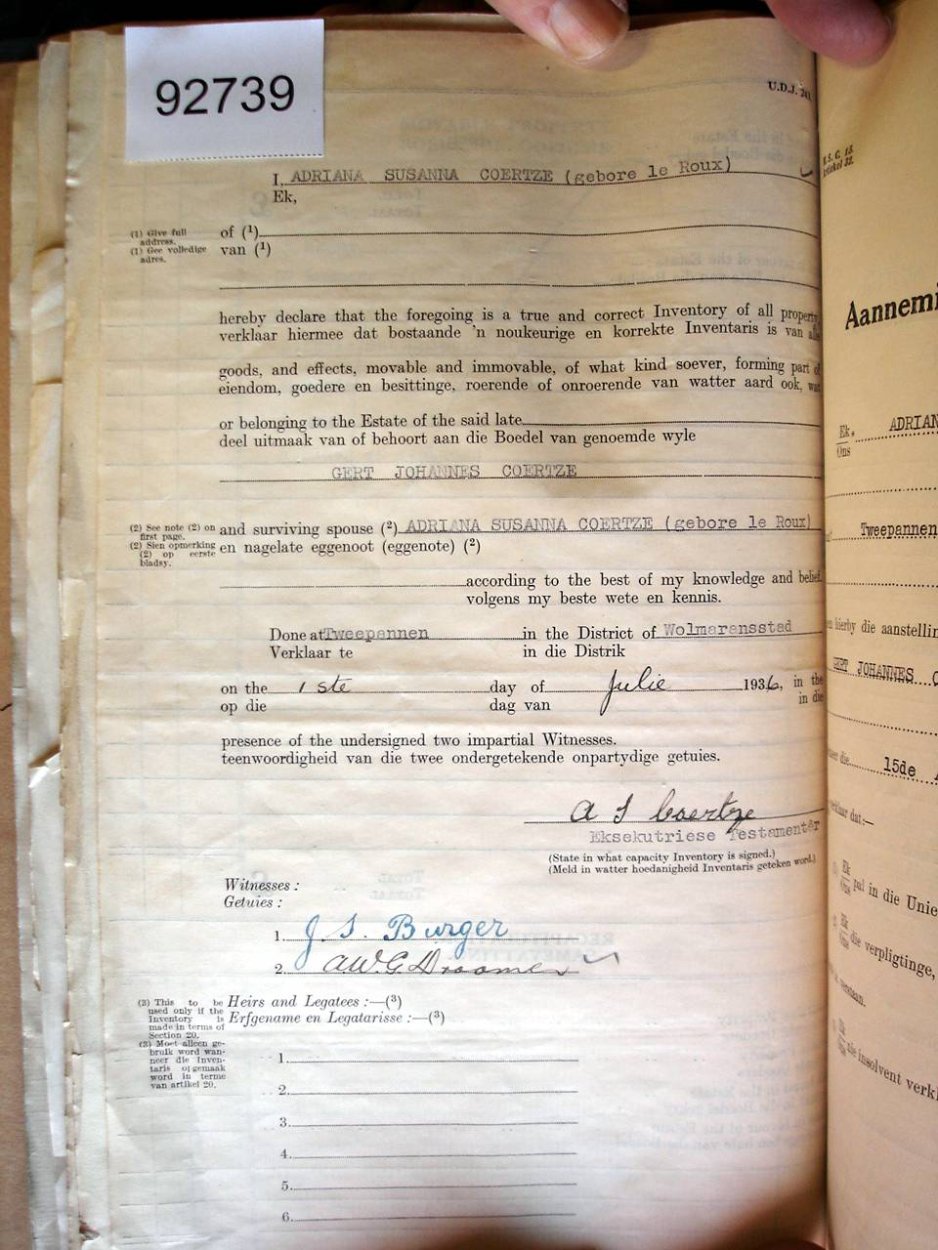 92739
U.D.J. 241.
I, ADRIANA SUSANNA COERTZE (gebore le Roux)
Ek,
(1) Give full address.
of (¹)
(1) Gee volledige adres.
van (¹)
hereby declare that the foregoing is a true and correct Inventory of all property
verklaar hiermee dat bostaande 'n noukeurige en korrekte Inventaris is van alle
goods, and effects, movable and immovable, of what kind soever, forming part of
eiendom, goedere en besittinge, roerende of onroerende van watter aard ook, wat
or belonging to the Estate of the said late
deel uitmaak van of behoort aan die Boedel van genoemde wyle
GERT JOHANNES COERTZE
(2) See note (2) on first page.
and surviving spouse (²) ADRIANA SUSANNA COERTZE (gebore le Roux)
(2) Sien opmerking (2) op eerste bladsy.
en nagelate eggenoot (eggenote) (²)
according to the best of my knowledge and belief.
volgens my beste wete en kennis.
Done at Tweepannen in the District of Wolmaransstad
Verklaar te in die Distrik
on the 1ste day of Julie 1936, in the
op die dag van in die
presence of the undersigned two impartial Witnesses.
teenwoordigheid van die twee ondergetekende onpartydige getuies.
A S Coertze
Eksekutriese Testamentêr
(State in what capacity Inventory is signed.)
(Meld in watter hoedanigheid Inventaris geteken word.)
Witnesses :
Getuies :
1. J. S. Burger
2.
(3) This to be used only if the Inventory is made in terms of Section 20.
Heirs and Legatees :—(³)
Erfgename en Legatarisse :—(³)
(3) Moet alleen gebruik word wanneer die Inventaris opgemaak word in terme van artikel 20.
1.
2.
3.
4.
5.
6.
Aannemi
Ek. ADRIAN
Ons
Tweepannen
hierby die aanstellin
GERT JOHANNES C
die 15de
dat:—
Ek
Ons
pal in die Unie
Ek
Ons
die verpligtinge,
insolvent verkl